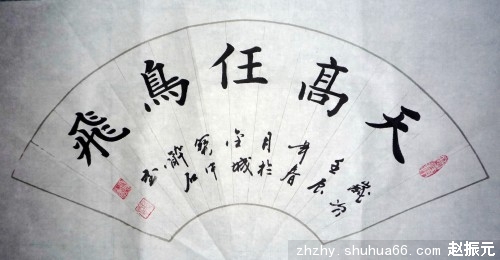 天髙任鳥飛
歲次
壬辰
年春
月於
金城
石
zhzhy.shuhua66.com 赵振元